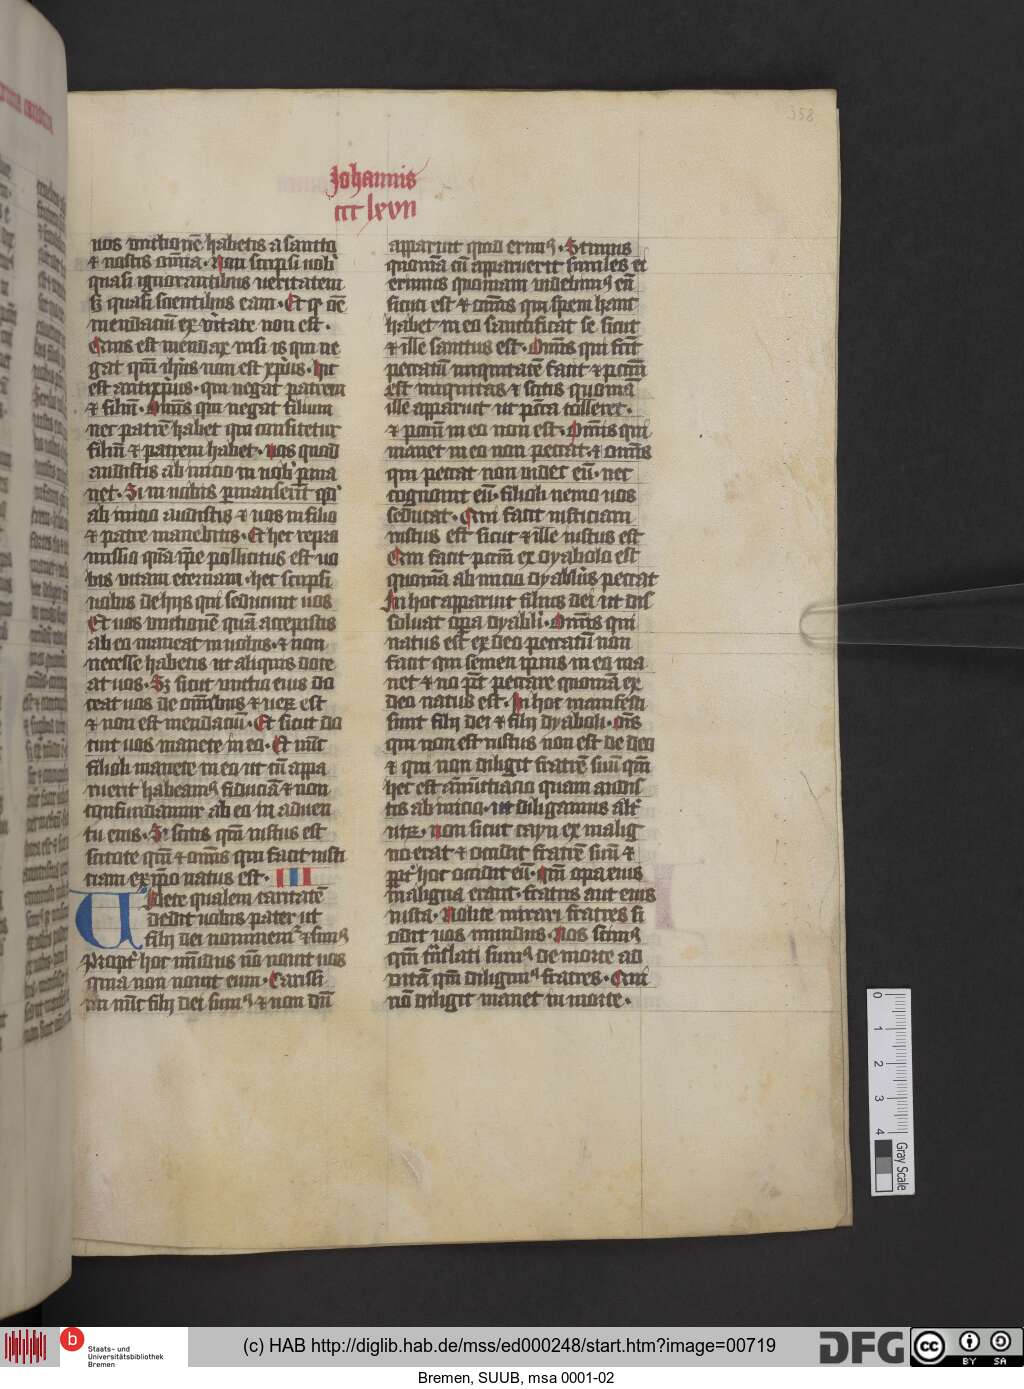 358
Johannis
ccc lxvii
uos unctionē habetis a sancto
⁊ nostis om̄ia. Non scripsi uob̾
quasi ignorantibus ueritatem
sꝫ quasi scientibus eam. Et qꝛ om̄e
mendaciū ex v̾itate non est.
Quis est mendax nisi is qui ne
gat qm̄ ih̄us non est xp̄us. hic
est antixp̄us. qui negat patrem
⁊ filiū. Om̄is qui negat filium
nec patrē habet qui confitetur
filiū ⁊ patrem habet. Uos quod
audistis ab inicio in uob̾ p̲ma
net. Si in uobis p̲manserit qd̾
ab inicio audistis ⁊ uos in filio
⁊ patre manebitis. Et hec repro
missio quā ip̄e pollicitus est uo
bis uitam eternam. hec scripsi
uobis de hijs qui seducunt uos
Et uos unctionē quā accepistis
ab eo maneat in uobis. ⁊ non
necesse habetis ut aliquis doce
at uos. Sꝫ sicut unctio eius do
cet uos de om̄ibus ⁊ uerꝝ est
⁊ non est mendaciū. Et sicut do
cuit uos manete in eo. Et nūc
filioli manete in eo ut cū appa
ruerit habeamꝰ fiduciā ⁊ non
confundamur ab eo in aduen
tu eius. Si scitis qm̄ iustus est
scitote qm̄ ⁊ om̄is qui facit iusti
ciam ex ip̄o natus est. III
Uidete qualem caritatē
dedit uobis pater ut
filij dei nominemr̾ ⁊ simꝰ
Propt̾ hoc mūdus nō nouit uos
quia non nouit eum. Carissi
mi nūc filij dei sumꝰ ⁊ non dū
apparuit quod erimꝰ. Scimus
quoniā cū apparuerit similes ei
erimus quoniam uidebimꝰ eū
sicuti est ⁊ om̄is qui spem hanc
habet in eo sanctificat se sicut
⁊ ille sanctus est. Om̄is qui facit
peccatū iniquitatē facit ⁊ pcc̄m
est iniquitas ⁊ scitis quoniā
ille apparuit ut pcc̄a tolleret.
⁊ pcc̄m in eo non est. Om̄is qui
manet in eo non peccat. ⁊ om̄is
qui peccat non uidet eū. nec
cognouit eū. filioli nemo uos
seducat. Qui facit iusticiam
iustus est sicut ⁊ ille iustus est
Qui facit pcc̄m ex dyabolo est
quoniā ab inicio dyabl̾us peccat
In hoc apparuit filius dei ut dis
soluat op̲a dyabl̾i. Om̄is qui
natus est ex deo peccatū non
facit qm̄ semen ip̄ius in eo ma
net ⁊ nō pōt peccare quoniā ex
deo natus est. In hoc manifesti
sunt filij dei ⁊ filij dyaboli. om̄s
qui non est iustus non est de deo
⁊ qui non diligit fratrē suū qm̄
hec est annūciacio quam audis
tis ab inicio. ut diligamus alt̾
utrꝝ. Non sicut cayn ex malig
no erat ⁊ occidit fratrē suū ⁊
ppt̾ hoc occidit eū. Qm̄ op̲a eius
maligna erant. fratris aut eius
iusta. Nolite mirari fratres si
odit uos mundus. Nos scimꝰ
qm̄ t̾nslati sumꝰ de morte ad
uitā qm̄ diligimꝰ fratres. Qui
nō diligit manet in morte.
0 1 2 3 4
Gray Scale
b Staats- und
Universitätsbibliothek
Bremen
(c) HAB http://diglib.hab.de/mss/ed000248/start.htm?image=00719
DFG
cc BY SA
Bremen, SUUB, msa 0001-02